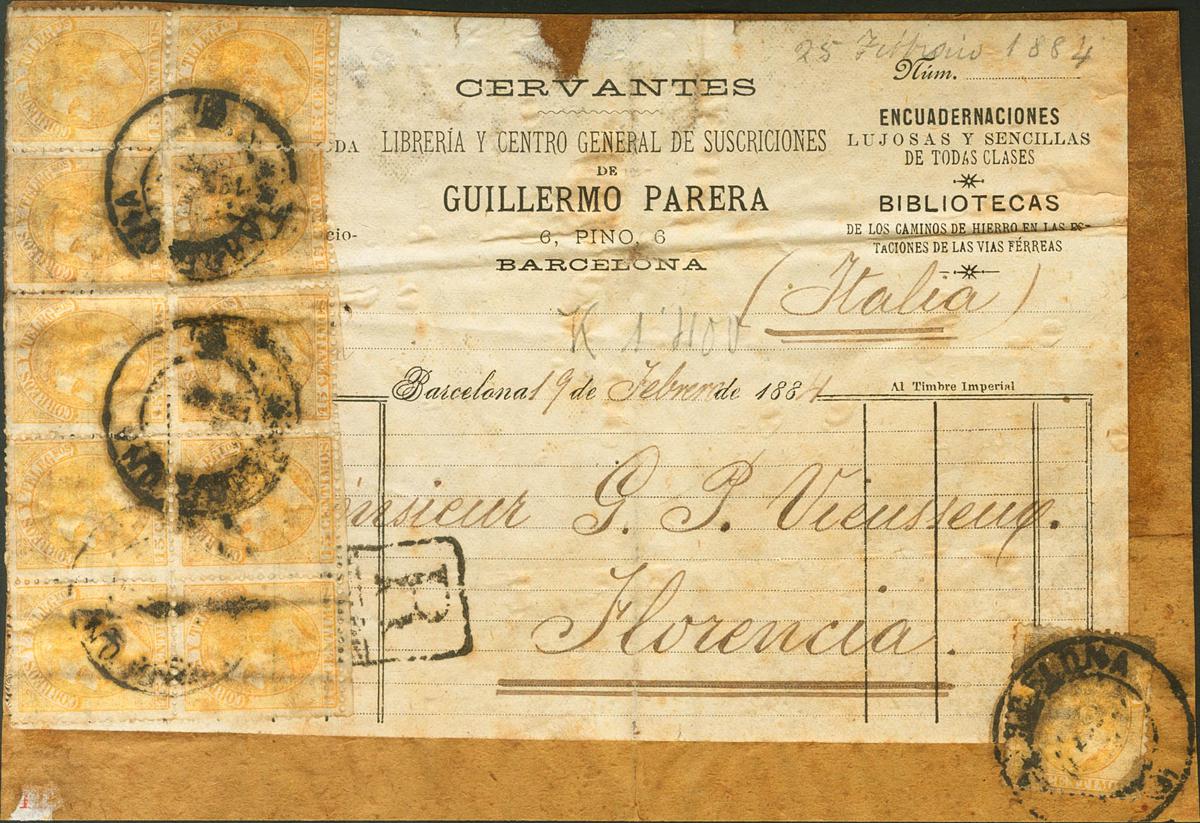 25 Febbraio 1884
Núm.
CERVANTES
LIBRERÍA Y CENTRO GENERAL DE SUSCRICIONES
DE
GUILLERMO PARERA
6, PINO, 6
BARCELONA
ENCUADERNACIONES
LUJOSAS Y SENCILLAS
DE TODAS CLASES
BIBLIOTECAS
DE LOS CAMINOS DE HIERRO EN LAS ES-
TACIONES DE LAS VIAS FÉRREAS
DA
cio-
(Italia)
K 1'400
Barcelona 19 de Febrero de 1884
Al Timbre Imperial
onsieur G. P. Vieusseux.
Florencia.
CORREOS Y TELEGFOS
15 CENTIMOS
BARCELONA